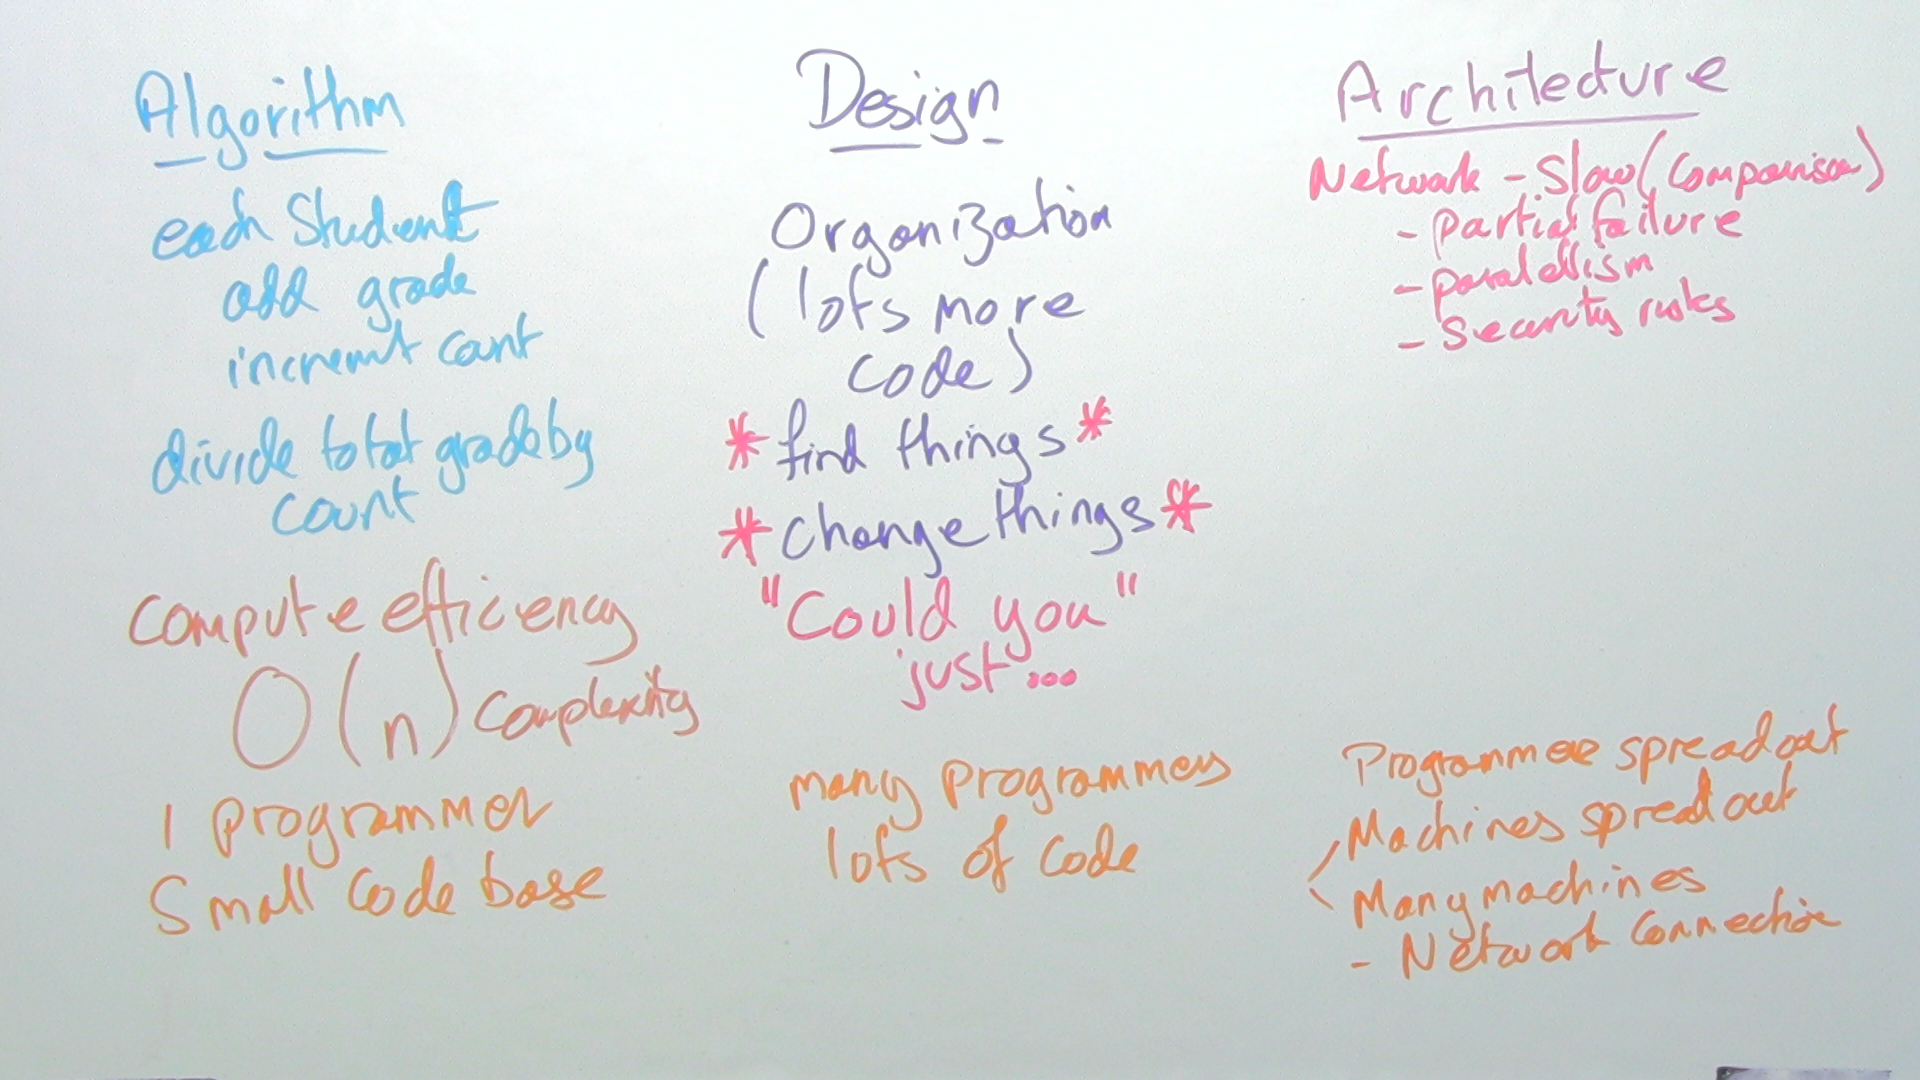 Algorithm
each Student
add grade
increment count
divide total grade by
count
Compute efficiency
O(n) Complexity
1 programmer
Small Code base
Design
Organization
(lots more
code)
*find things*
*change things*
"Could you"
just...
many programmers
lots of code
Architecture
Network - Slow (Comparison)
- partial failure
- parallelism
- Security risks
Programmers spread out
Machines spread out
Many machines
- Network Connection